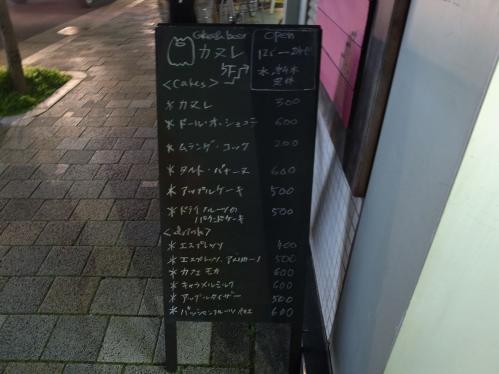 Cake&beer
カヌレ
5F
open
12じ—
水
定休
<Cakes>
*カヌレ 300
*ドール・オ・ショコラ 600
*ムラング・コック 200
*タルト・バナーヌ 600
*アップルケーキ 500
*ドライフルーツの
パウンドケーキ 500
<drink>
*エスプレッソ 400
*エスプレッソ・アメリカーノ 500
*カフェモカ 600
*キャラメルミルク 600
*アップルタイザー 500
*パッションフルーツ 600